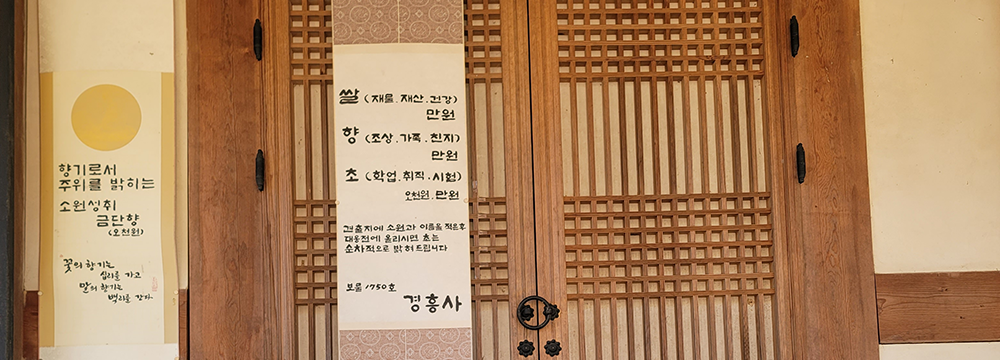 향기로서
주위를 밝히는
소원성취
금단향
(오천원)
꽃의 향기는
십리를 가고
말의 향기는
백리를 간다
쌀 (재물.재산.건강)
만원
향 (조상.가족.친지)
만원
초 (학업.취직.시험)
오천원.만원
견출지에 소원과 이름을 적은후
대웅전에 올리시면 초는
순차적으로 밝혀드립니다
보물 1750호
경흥사